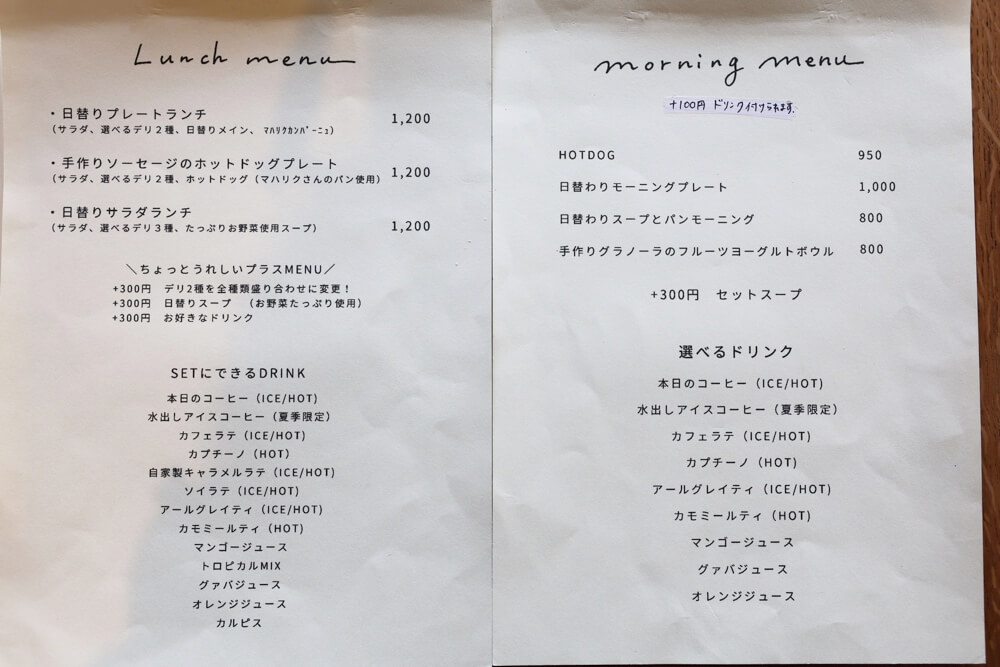 Lunch menu
・日替りプレートランチ
（サラダ、選べるデリ２種、日替りメイン、 ﾏﾊﾘｸｶﾝﾊﾟｰﾆｭ）
1,200
・手作りソーセージのホットドッグプレート
（サラダ、選べるデリ２種、ホットドッグ（マハリクさんのパン使用）
1,200
・日替りサラダランチ
（サラダ、選べるデリ３種、たっぷりお野菜使用スープ）
1,200
＼ちょっとうれしいプラスMENU／
+300円　デリ2種を全種類盛り合わせに変更！
+300円　日替りスープ　（お野菜たっぷり使用）
+300円　お好きなドリンク
SETにできるDRINK
本日のコーヒー（ICE/HOT)
水出しアイスコーヒー（夏季限定）
カフェラテ（ICE/HOT)
カプチーノ（HOT）
自家製キャラメルラテ（ICE/HOT)
ソイラテ（ICE/HOT)
アールグレイティ（ICE/HOT)
カモミールティ（HOT)
マンゴージュース
トロピカルMIX
グァバジュース
オレンジジュース
カルピス
morning menu
+100円 ドリンク付けられます。
HOTDOG 950
日替わりモーニングプレート 1,000
日替わりスープとパンモーニング 800
手作りグラノーラのフルーツヨーグルトボウル 800
+300円　セットスープ
選べるドリンク
本日のコーヒー（ICE/HOT)
水出しアイスコーヒー（夏季限定）
カフェラテ（ICE/HOT)
カプチーノ（HOT)
アールグレイティ（ICE/HOT)
カモミールティ（HOT)
マンゴージュース
グァバジュース
オレンジジュース